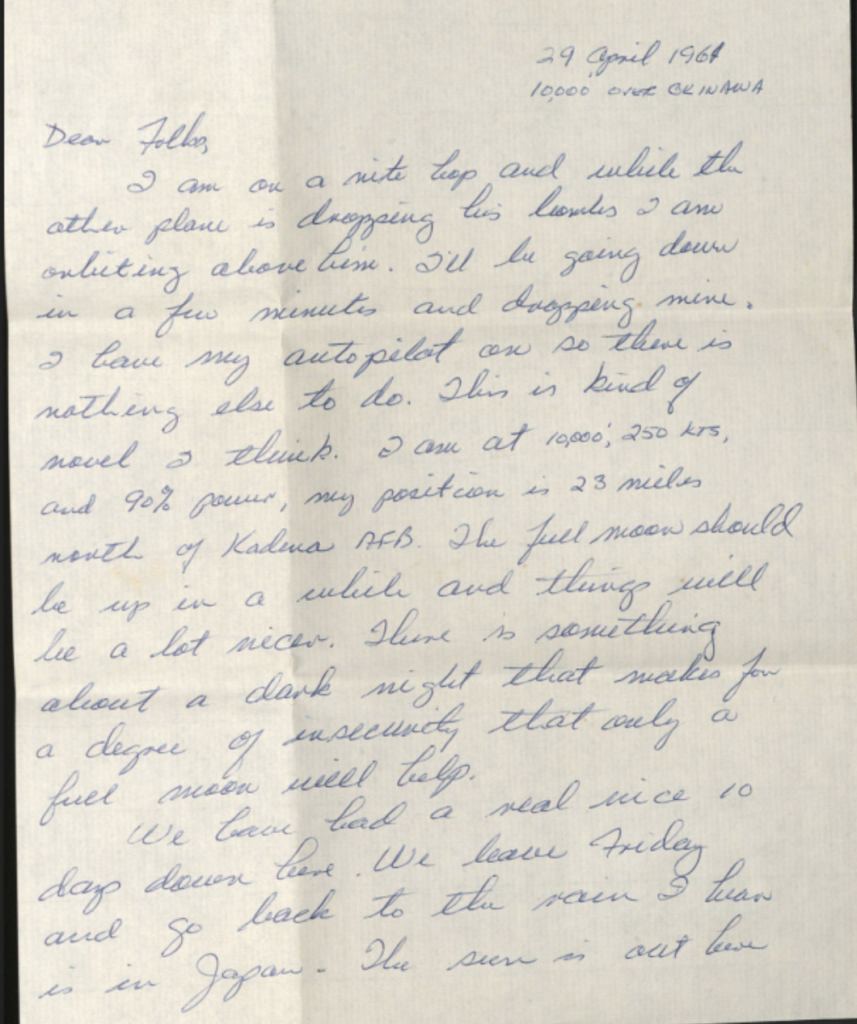 29 April 1964
10,000' OVER OKINAWA
Dear Folks,
I am on a nite hop and while the
other plane is dropping his bombs I am
orbiting above him. I'll be going down
in a few minutes and dropping mine.
I have my autopilot on so there is
nothing else to do. This is kind of
novel I think. I am at 10,000', 250 KTS,
and 90% power, my position is 23 miles
north of Kadena AFB. The full moon should
be up in a while and things will
be a lot nicer. There is something
about a dark night that makes for
a degree of insecurity that only a
full moon will help.
We have had a real nice 10
days down here. We leave Friday
and go back to the rain I hear
is in Japan. The sun is out here